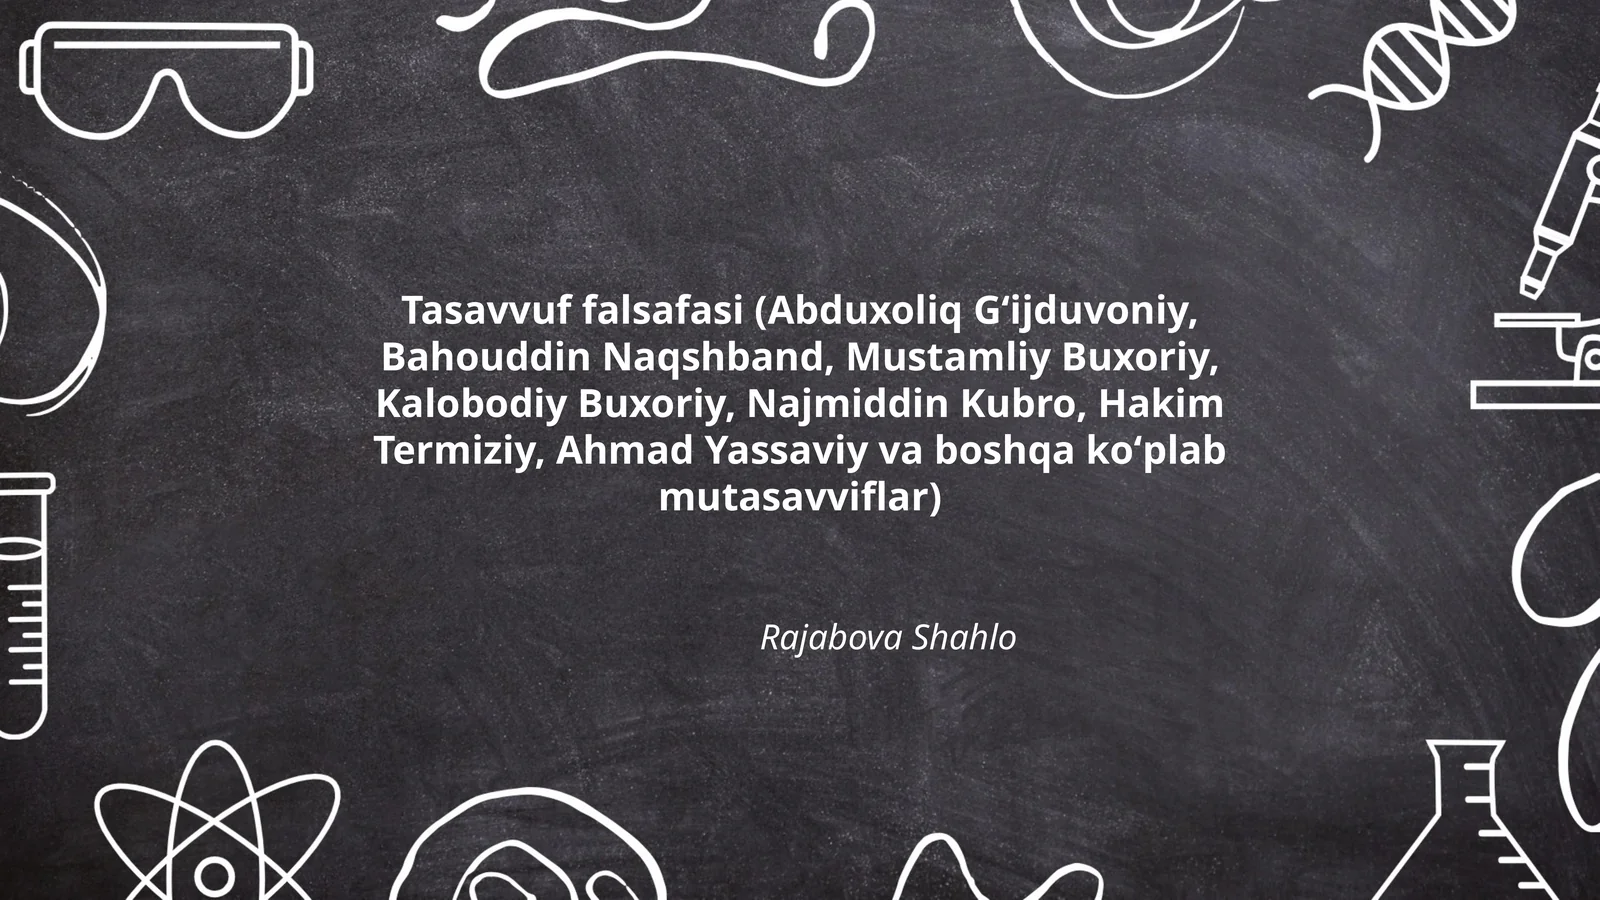 Tasavvuf falsafasi (Abduxoliq Gʻijduvoniy,
Bahouddin Naqshband, Mustamliy Buxoriy,
Kalobodiy Buxoriy, Najmiddin Kubro, Hakim
Termiziy, Ahmad Yassaviy va boshqa koʻplab
mutasavviflar)
Rajabova Shahlo